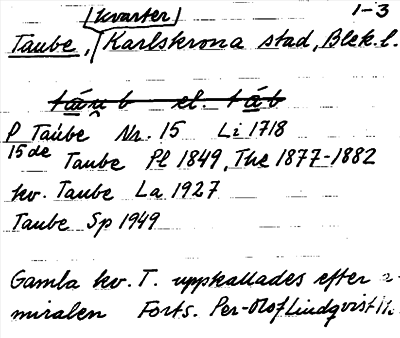 (kvarter) 1-3
Taube, Karlskrona stad, Blek.l.
P Taübe Nr. 15 Li 1718
15de Taube Pl 1849, The 1877-1882
kv. Taube La 1927
Taube Sp 1949
Gamla kv. T. uppkallades efter a-
miralen Forts. Per-Olof Lindqvist